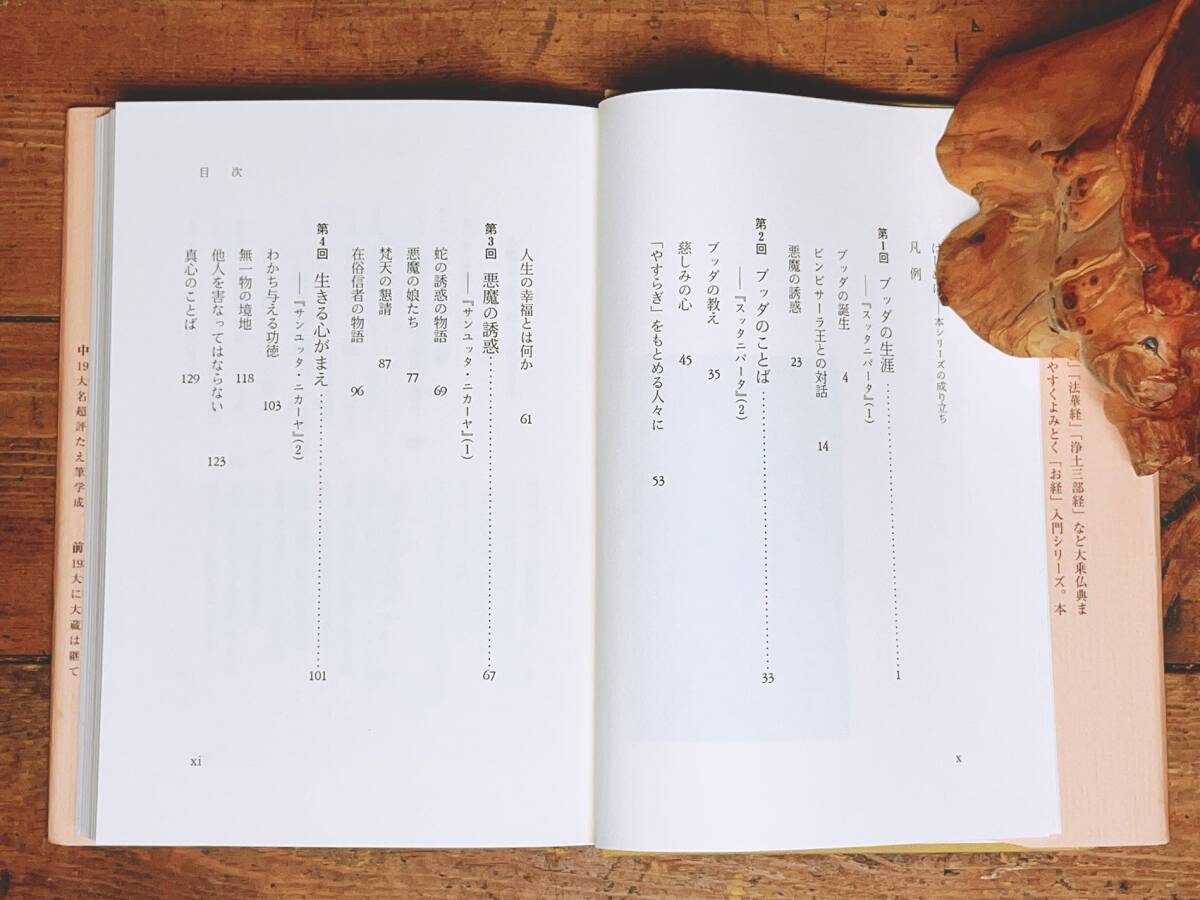 本シリーズの成り立ち
凡例
第1回 ブッダの生涯 1
――『スッタニパータ』(1)
ブッダの誕生 4
ビンビサーラ王との対話 14
悪魔の誘惑 23
第2回 ブッダのことば 33
――『スッタニパータ』(2)
ブッダの教え 35
慈しみの心 45
「やすらぎ」をもとめる人々に 53
x
目次
人生の幸福とは何か 61
第3回 悪魔の誘惑 67
――『サンユッタ・ニカーヤ』(1)
蛇の誘惑の物語 69
悪魔の娘たち 77
梵天の懇請 87
在俗信者の物語 96
第4回 生きる心がまえ 101
――『サンユッタ・ニカーヤ』(2)
わかち与える功徳 103
無一物の境地 118
他人を害なってはならない 123
真心のことば 129
xi
」「法華経」「浄土三部経」など大乗仏典ま
やすくよみとく「お経」入門シリーズ。本
中19大名超評たえ筆学成 前19大に大蔵は継て